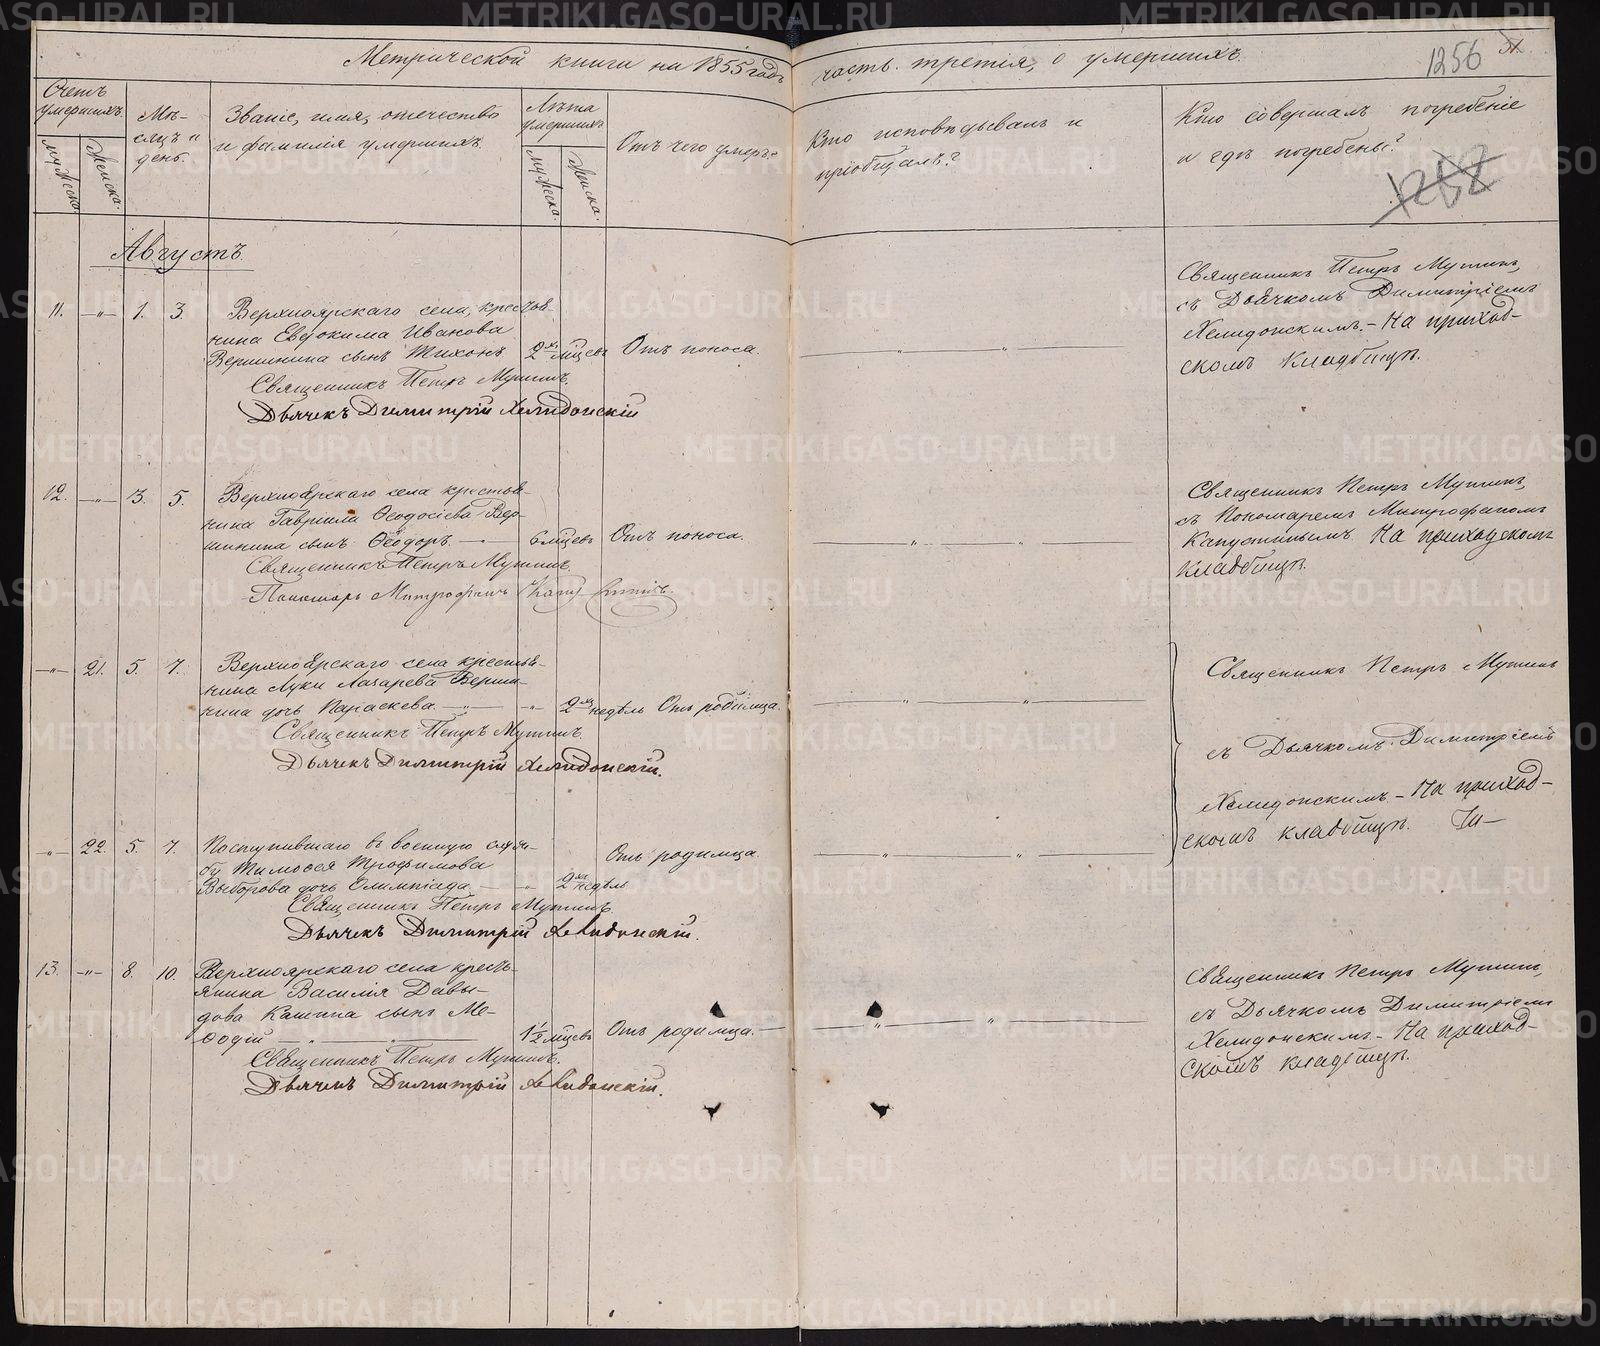 Метрической книги на 1855 годъ часть третія, о умершихъ.
1256
51.
Счетъ умершихъ.
Мужеска.
Женска.
Мѣ-
сяцъ и
день.
Званіе, имя, отечество
и фамилія умершихъ.
Лѣта умершихъ
Мужеска.
Женска.
Отъ чего умеръ?
Кто исповѣдывалъ и
пріобщалъ?
Кто совершалъ погребеніе
и гдѣ погребены?
Августъ.
11. —„— 1. 3
Верхноярскаго села, кресть-
нина Евдокима Иванова
Вершинина сынъ Тихонъ 2хъ мцевъ Отъ поноса.
Священникъ Петръ Мутинъ.
Дьячекъ Димитрій Хелидонскій
Священникъ Петръ Мутинъ,
съ Дьячкомъ Димитріемъ
Хелидонскимъ. – На приход-
скомъ кладбищѣ.
12. —„— 3. 5.
Верхноярскаго села крестья-
нина Гавріила Ѳеодосіева Вер-
шинина сынъ Ѳеодоръ. — 6 мцевъ Отъ поноса.
Священникъ Петръ Мутинъ.
Пономарь Митрофанъ
Священникъ Петръ Мутинъ,
съ Пономаремъ Митрофаномъ
Капустинымъ. На приходскомъ
кладбищѣ.
—„— 21. 5. 7.
Верхноярскаго села крестья-
нина Луки Лазарева Верши-
нина дочь Параскева. —„— „ 2хъ недѣль Отъ родимца.
Священникъ Петръ Мутинъ.
Дьячекъ Димитрій Хелидонскій.
Священникъ Петръ Мутинъ
съ Дьячкомъ Димитріемъ
Хелидонскимъ. – На приход-
скомъ кладбищѣ.
—„— 22. 5. 7.
Поступившаго въ военную служ-
бу Тимоѳея Трофимова
Выборова дочь Олимпіада. — „ 2хъ недѣль
Отъ родимца.
Священникъ Петръ Мутинъ.
Дьячекъ Димитрій Хелидонскій.
13. —„— 8. 10.
Верхноярскаго села кресть-
янина Василія Давы-
дова сынъ Ме-
ѳодій 1 1/2 мцевъ Отъ родимца. —
Священникъ Петръ Мутинъ.
Дьячекъ Димитрій Хелидонскій.
Священникъ Петръ Мутинъ,
съ Дьячкомъ Димитріемъ
Хелидонскимъ. – На приход-
скомъ кладбищѣ.
METRIKI.GASO-URAL.RU